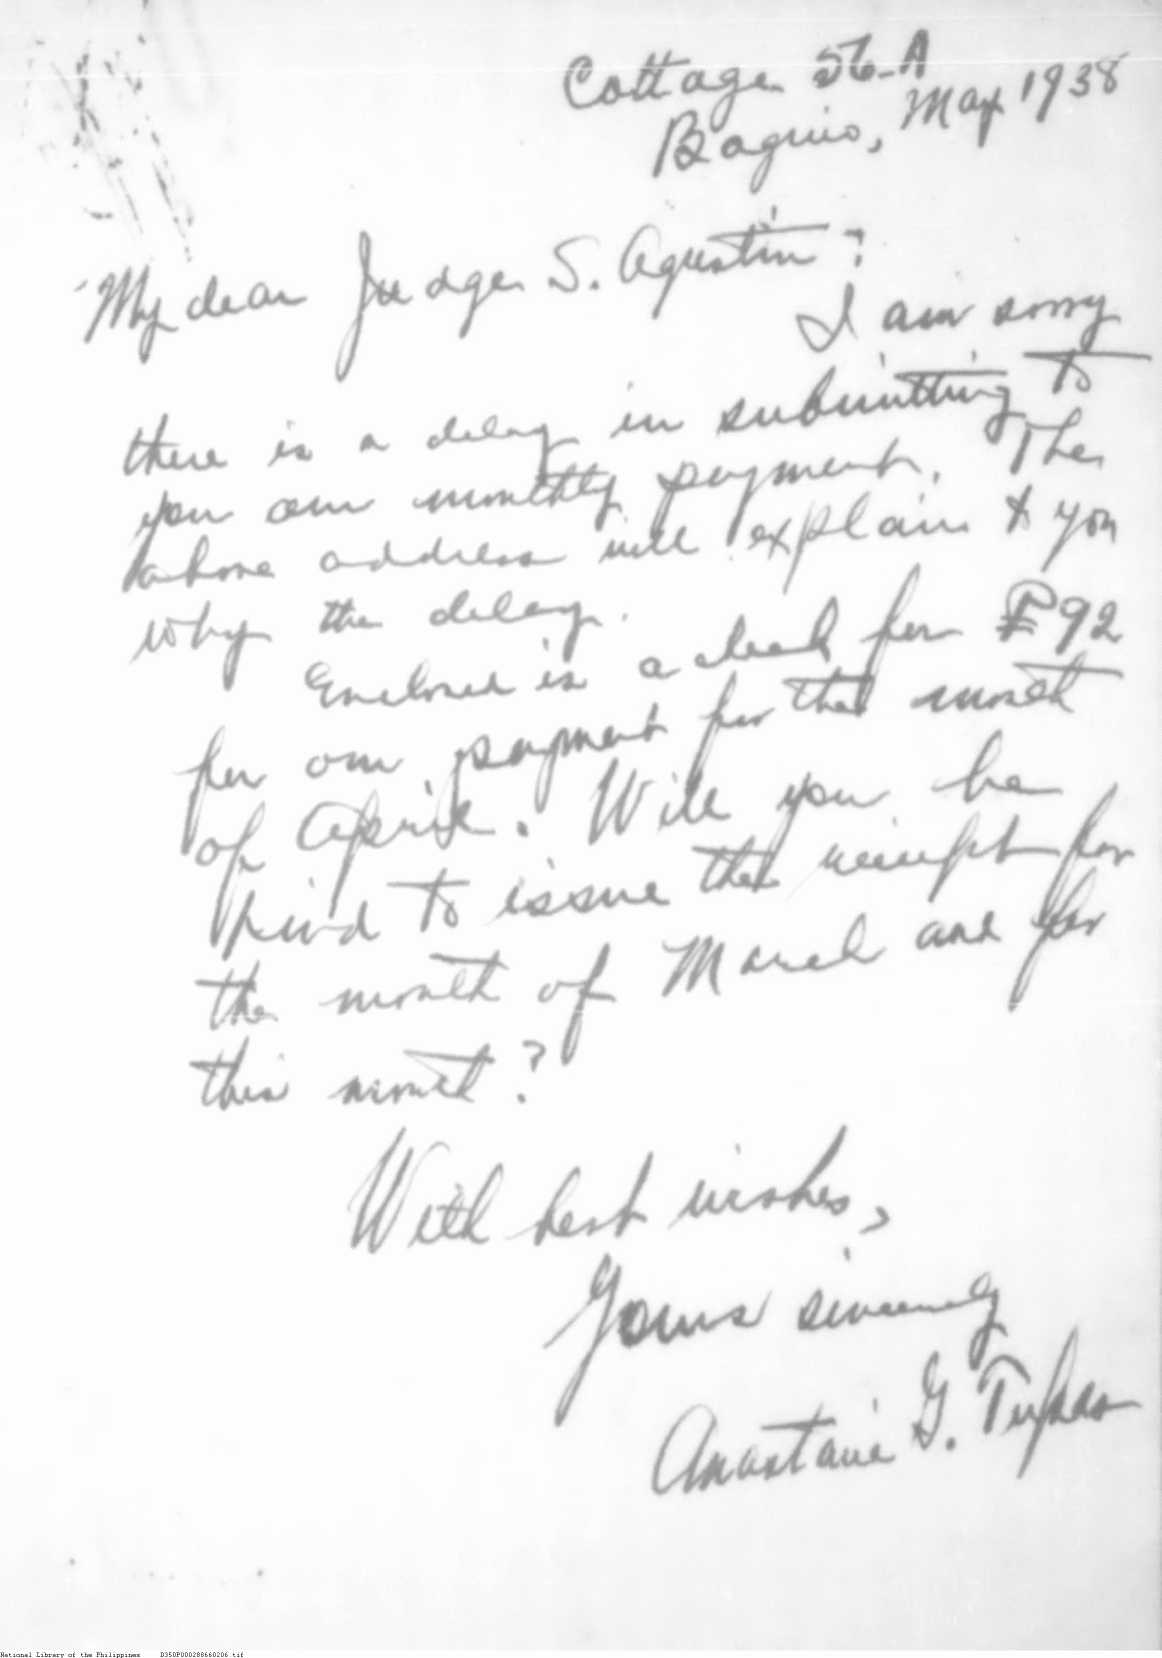 Cottage 56-A
Baguio, May 1938
My dear Judge S. Agustin:
I am sorry
there is a delay in submitting to
you our monthly payment. The
above address will explain to you
why the delay.
Enclosed is a check for ₱92
for our payment for the month
of April. Will you be
kind to issue the receipt for
the month of March and for
this month?
With best wishes,
Yours sincerely
Anastacia G.
National Library of the Philippines D350P000288660206.tif